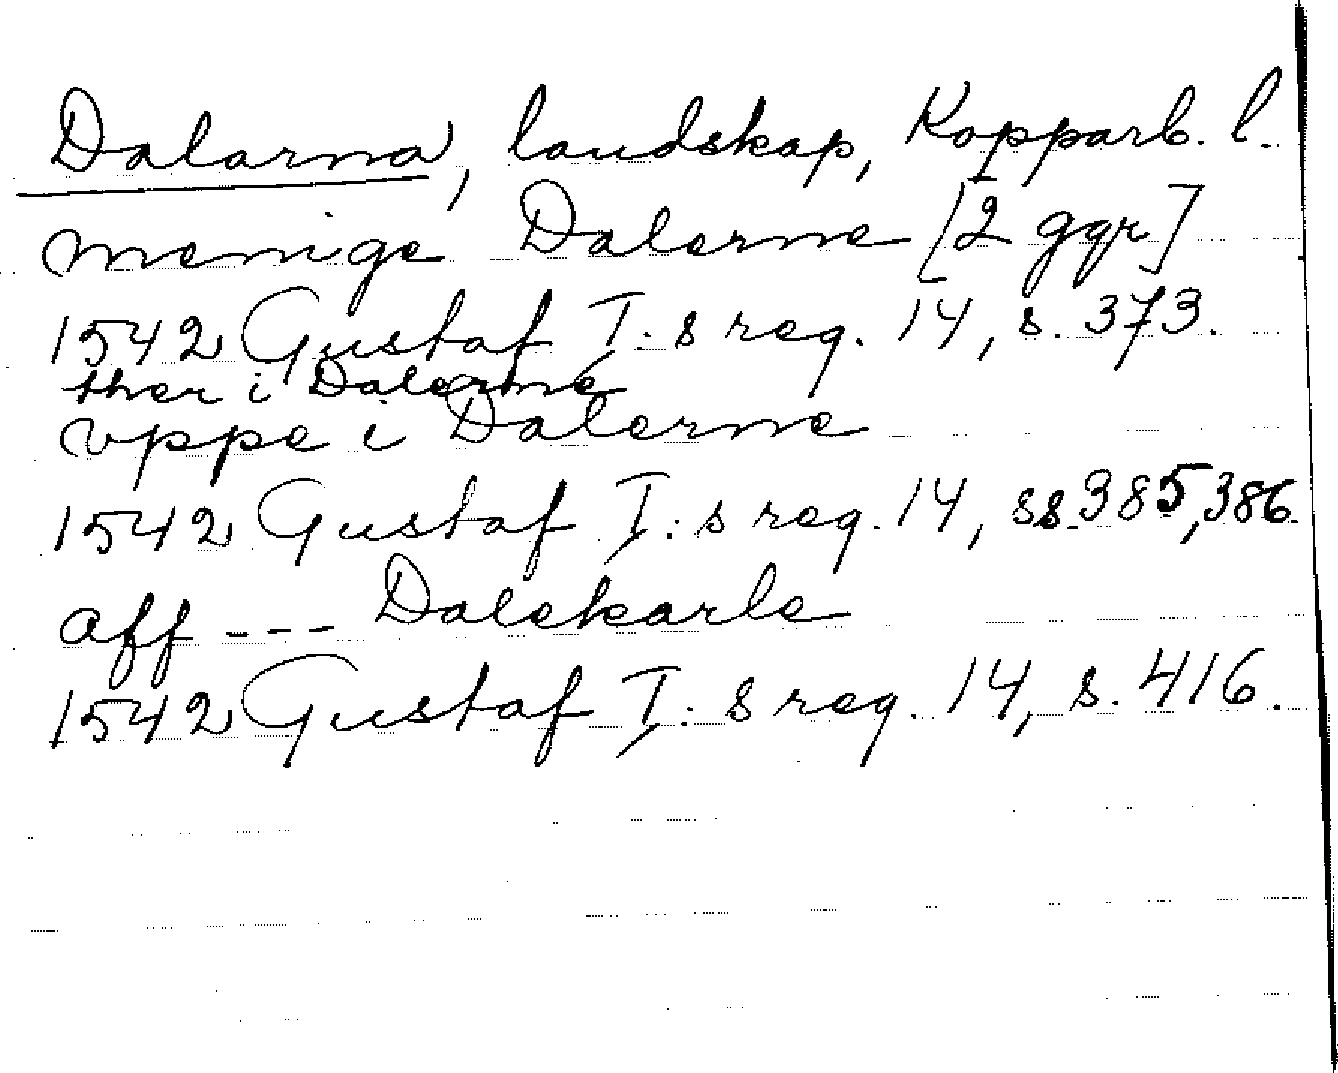 Dalarna, landskap, Kopparb. l.
menige Dalerne [2 ggr]
1542 Gustaf I:s reg. 14, s. 373.
ther i Dalerne
vppe i Dalerne
1542 Gustaf I:s reg. 14, ss. 385, 386.
aff --- Dalekarle
1542 Gustaf I:s reg. 14, s. 416.